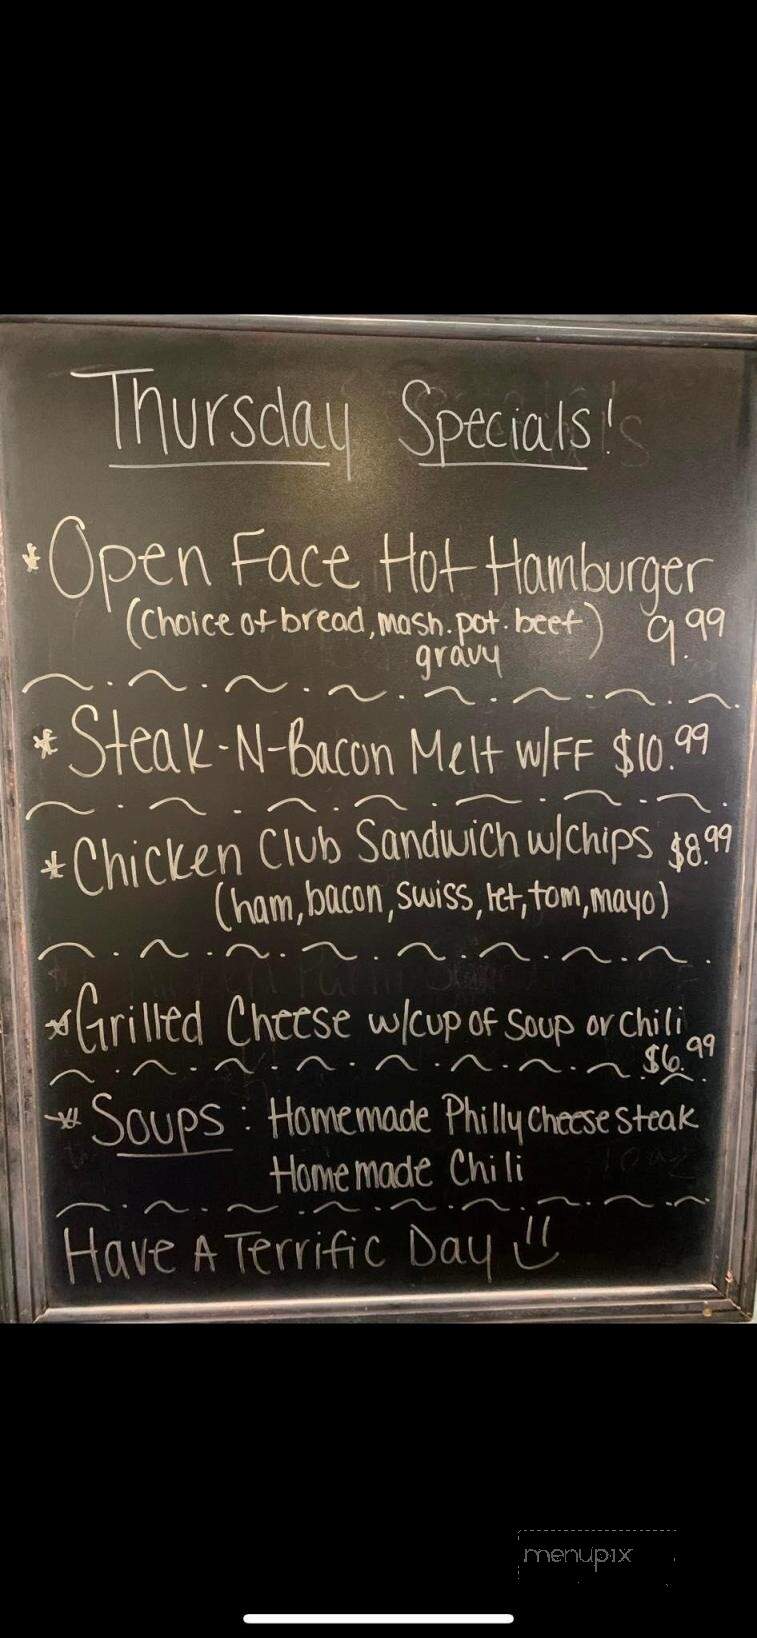 Thursday Specials!
* Open Face Hot Hamburger
(Choice of bread, mash. pot. beef) 9.99
gravy
* Steak-N-Bacon Melt w/FF $10.99
* Chicken Club Sandwich w/chips $8.99
(ham, bacon, swiss, let, tom, mayo)
* Grilled Cheese w/cup of soup or chili
$6.99
* Soups: Homemade Philly cheese steak
Homemade Chili
Have A Terrific Day
menupix